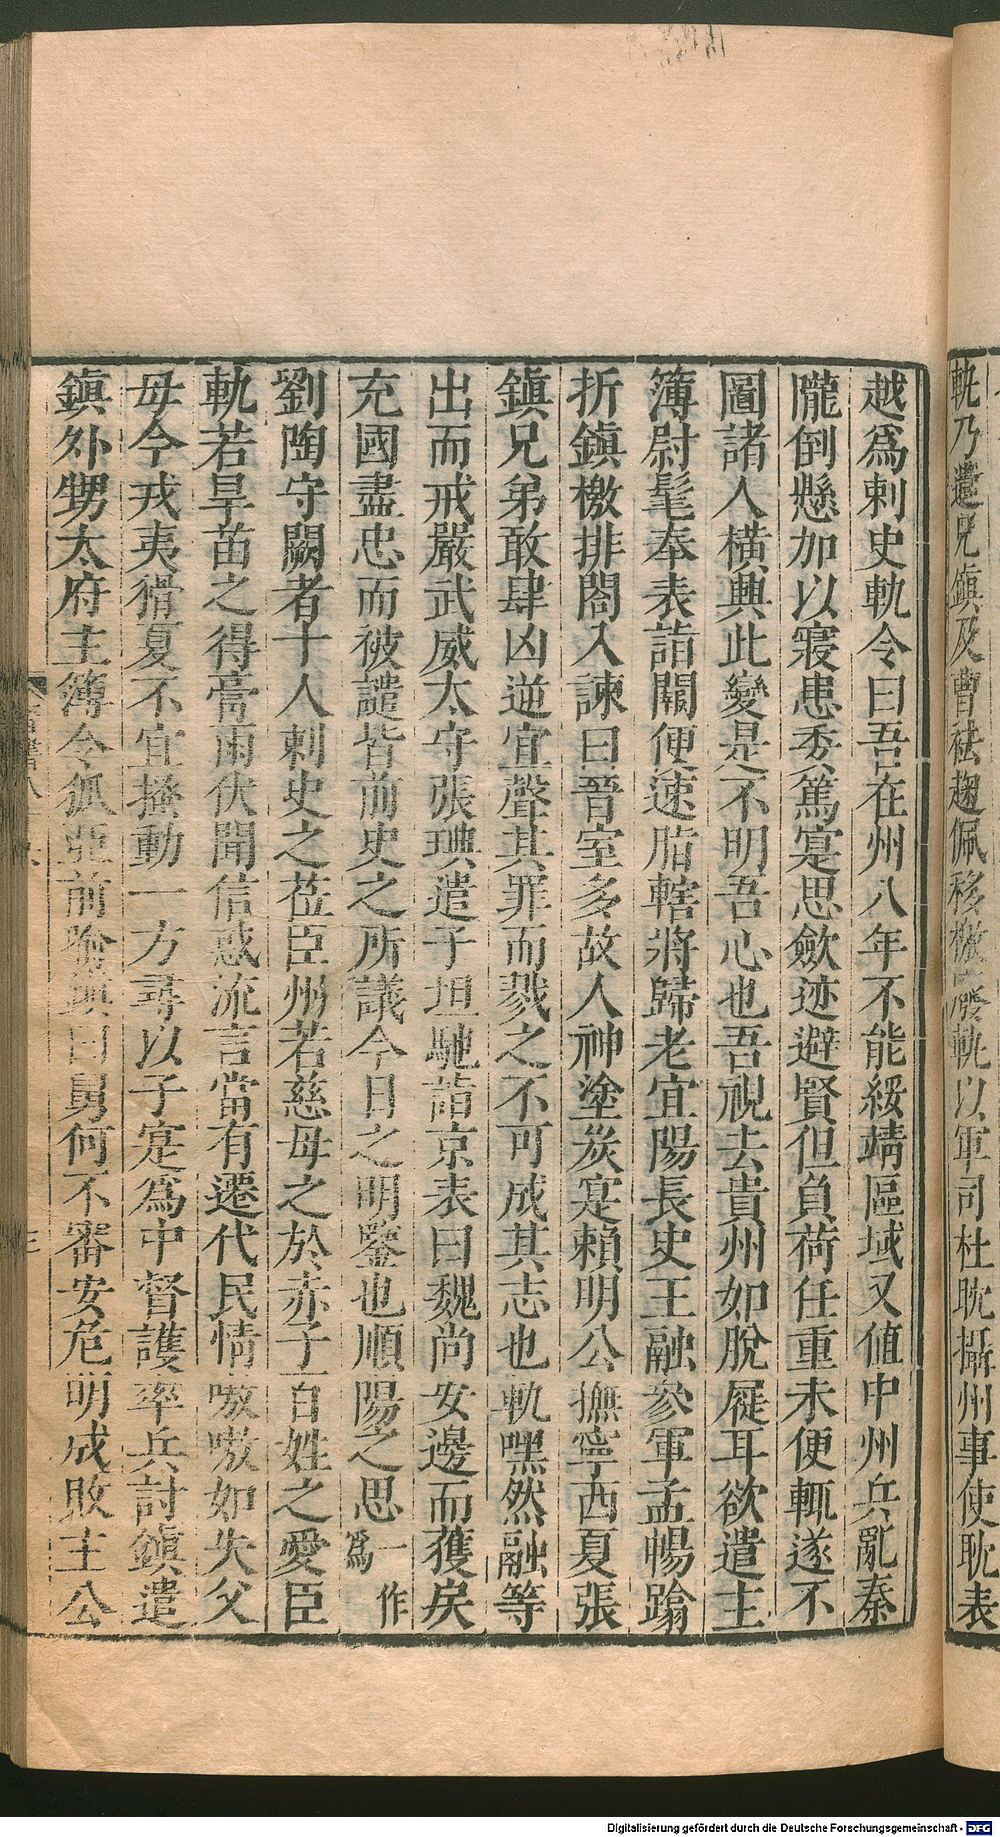 軌乃遣兄鎮及曹袪麹佩移檄廢軌以軍司杜耽攝州事使耽表
越爲刺史軌令曰吾在州八年不能綏靖區域又値中州兵亂秦
隴倒懸加以寢患委篤寔思斂迹避賢但負荷任重未便輒遂不
圖諸人橫興此變是不明吾心也吾視去貴州如脫屣耳欲遣主
簿尉髦奉表詣闕便速脂轄將歸老宜陽長史王融參軍孟暢蹋
折鎮檄排閤入諫曰晉室多故人神塗炭寔賴明公撫寧西夏張
鎮兄弟敢肆凶逆宜聲其罪而戮之不可成其志也軌嘿然融等
出而戒嚴武威太守張琠遣子坦馳詣京表曰魏尚安邊而獲戾
充國盡忠而被譴皆前史之所議今日之明鑒也順陽之思一作爲
劉陶守闕者十人刺史之莅臣州若慈母之於赤子百姓之愛臣
軌若旱苗之得膏雨伏聞信惑流言當有遷代民情嗷嗷如失父
母今戎夷猾夏不宜搔動一方尋以子寔爲中督護率兵討鎮遣
鎮外甥太府主簿令狐亞前喻鎮曰舅何不審安危明成敗主公
Digitalisierung gefördert durch die Deutsche Forschungsgemeinschaft - DFG